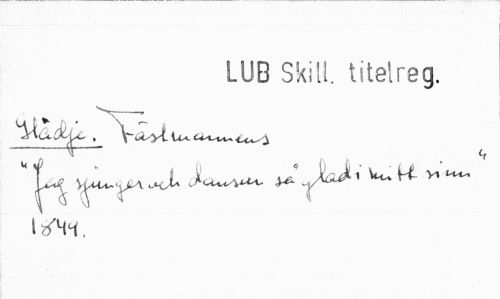 LUB Skill. titelreg.
Glädje. Fästmannens
"Jag sjunger och dansar så glad i mitt sinn"
1849.